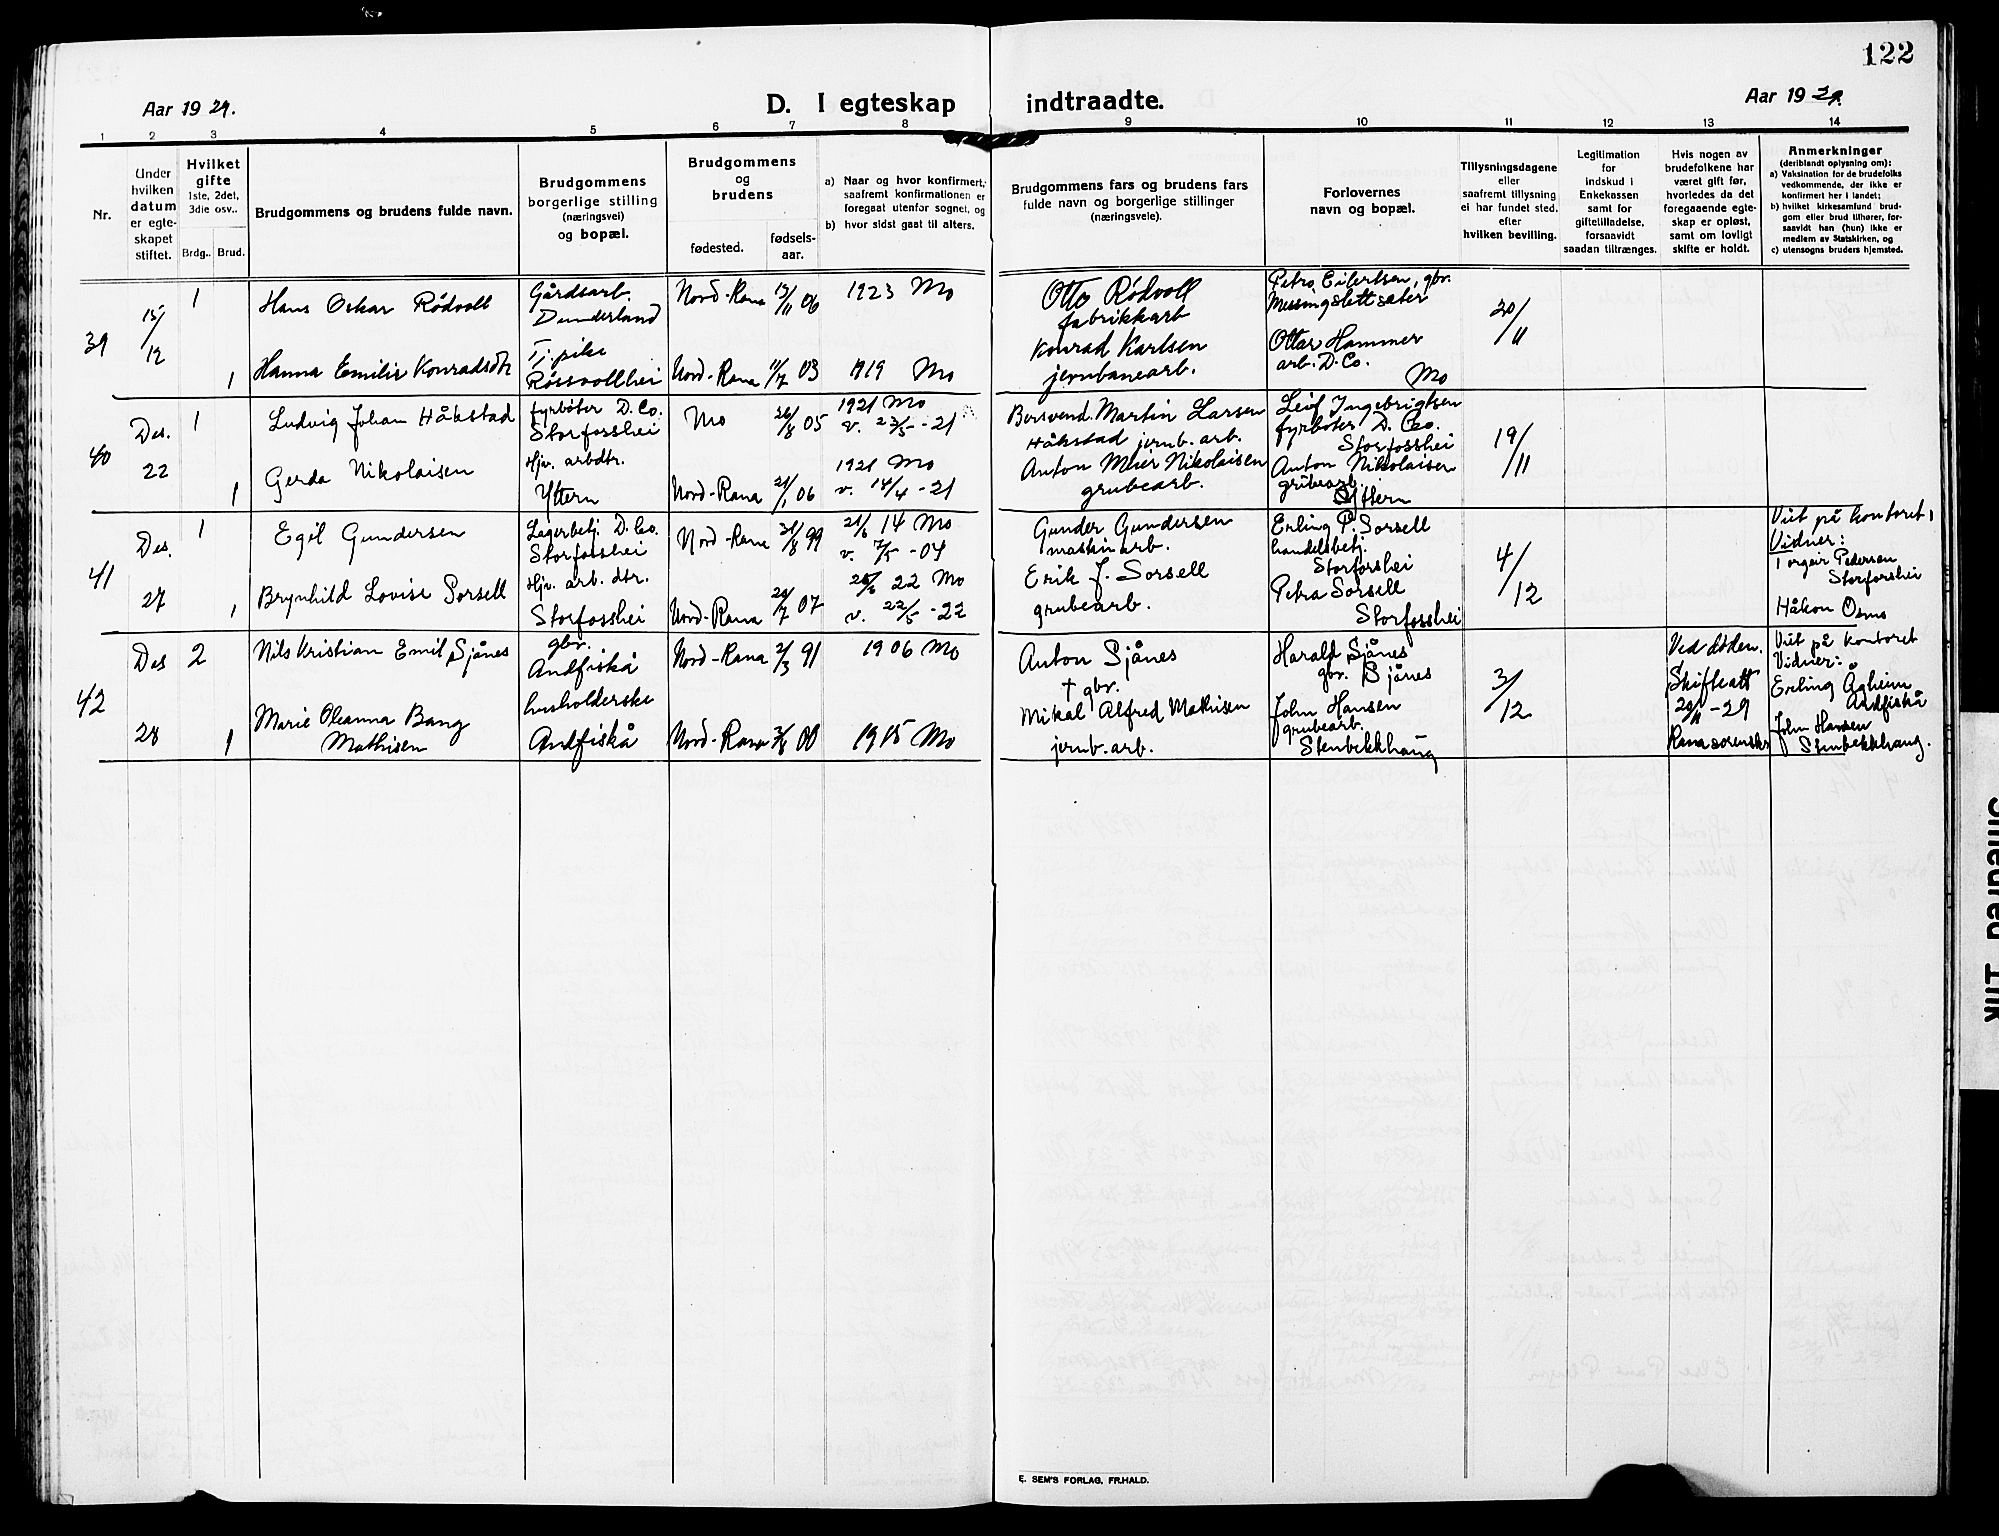 122
Aar 1929.
D. I egteskap indtraadte.
Aar 1929.
1 2 3 4 5 6 7 8 9 10 11 12 13 14
Nr.
Under
hvilken
datum
er egte-
skapet
stiftet.
Hvilket
gifte
1ste, 2det,
3die osv..
Brdg.. Brud.
Brudgommens og brudens fulde navn.
Brudgommens
borgerlige stilling
(næringsvei)
og bopæl.
Brudgommens
og
brudens
fødested.
fødsels-
aar.
a) Naar og hvor konfirmert,
saafremt konfirmationen er
foregaat utenfor sognet, og
b) hvor sidst gaat til alters.
Brudgommens fars og brudens fars
fulde navn og borgerlige stillinger
(næringsveie).
Forlovernes
navn og bopæl.
Tillysningsdagene
eller
saafremt tillysning
ei har fundet sted,
efter
hvilken bevilling.
Legitimation
for
indskud i
Enkekassen
samt for
giftetilladelse,
forsaavidt
saadan tiltrænges.
Hvis nogen av
brudefolkene har
været gift før,
hvorledes da det
foregaaende egte-
skap er opløst,
samt om lovligt
skifte er holdt.
Anmerkninger
(deriblandt oplysning om):
a) Vaksination for de brudefolks
vedkommende, der ikke er
konfirmert her i landet;
b) hvilket kirkesamfund brud-
gom eller brud tilhører, for-
saavidt han (hun) ikke er
medlem av Statskirken, og
c) utensogns bruders hjemsted.
39
15/12
1
Hans Oskar Rödvoll
Gårdsarb.
Dunderland
Nord-Rana 13/11 06
1923 Mo
Otto Rödvoll
fabrikkarb
Petro Eilertsen, gbr.
Messingslettsæter
20/11
1
Hanna Emilie Konradsdtr
Tj. pike
Røssvollhei
Nord-Rana 11/7 03
1919 Mo
Konrad Karlsen
jernbanearb.
Ottar Hammer
arb. D. Co.
Mo
40
Des.
22
1
Ludvig Johan Håkstad
fyrbøter D. Co.
Storfosshei
Mo 26/8 05
1921 Mo
v. 23/5 -21
Bersvend Martin Larsen
Håkstad jernb. arb.
Leif Ingebrigtsen
fyrbøter D. Co.
Storfosshei
19/11
1
Gerda Nikolaisen
Hjv. arbdtr.
Yttern
Nord-Rana 21/1 06
1921 Mo
v. 14/4 -21
Anton Meier Nikolaisen
grubearb.
Anton Nikolaisen
grubearb.
Yttern
41
Des.
27
1
Egil Gundersen
Lagerbetj. D. Co.
Storfosshei
Nord-Rana 31/8 99
21/6 14 Mo
v. 7/5 -04
Gunder Gundersen
maskinarb.
Erling P. Sorsell
handelsbetj.
Storforshei
4/12
Viet på kontoret,
Vidner:
Torgeir Pedersen
Storforshei
Håkon Osmo
1
Brynhild Lovise Sorsell
Hjv. arb. dtr.
Storfosshei
Nord-Rana 24/7 07
25/6 22 Mo
v. 22/5 -22
Erik J. Sorsell
grubearb.
Petra Sorsell
Storfosshei
42
Des
28
2
Nils Kristian Emil Sjånes
gbr.
Andfiskå
Nord-Rana 2/3 91
1906 Mo
Anton Sjånes
† gbr.
Harald Sjånes
gbr. Sjånes
3/12
Ved døden.
Skifteatt
Rana sorenskr
Viet på kontoret
Vidner:
Erling Ågheim
Andfiskå
John Hansen
Stenbekkhaug.
1
Marie Oleanna Bang
Mathisen
husholderske
Andfiskå
Nord-Rana 00
1915 Mo
Mikal Alfred Mathisen
jernb. arb.
John Hansen
grubearb.
Stenbekkhaug
E. SEM'S FORLAG, FR.HALD.